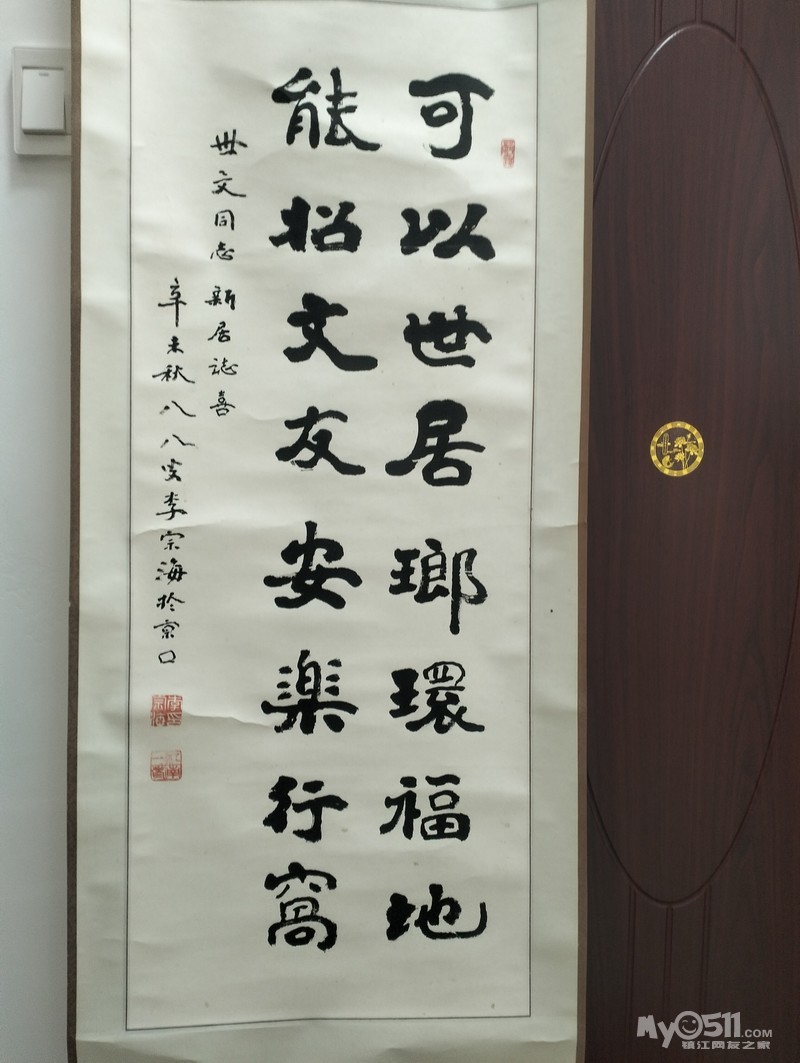 可以世居瑯環福地
能招文友安樂行窩
世文同志新居誌喜
辛未秋八八叟李宗海於京口
My0511.com
镇江网友之家